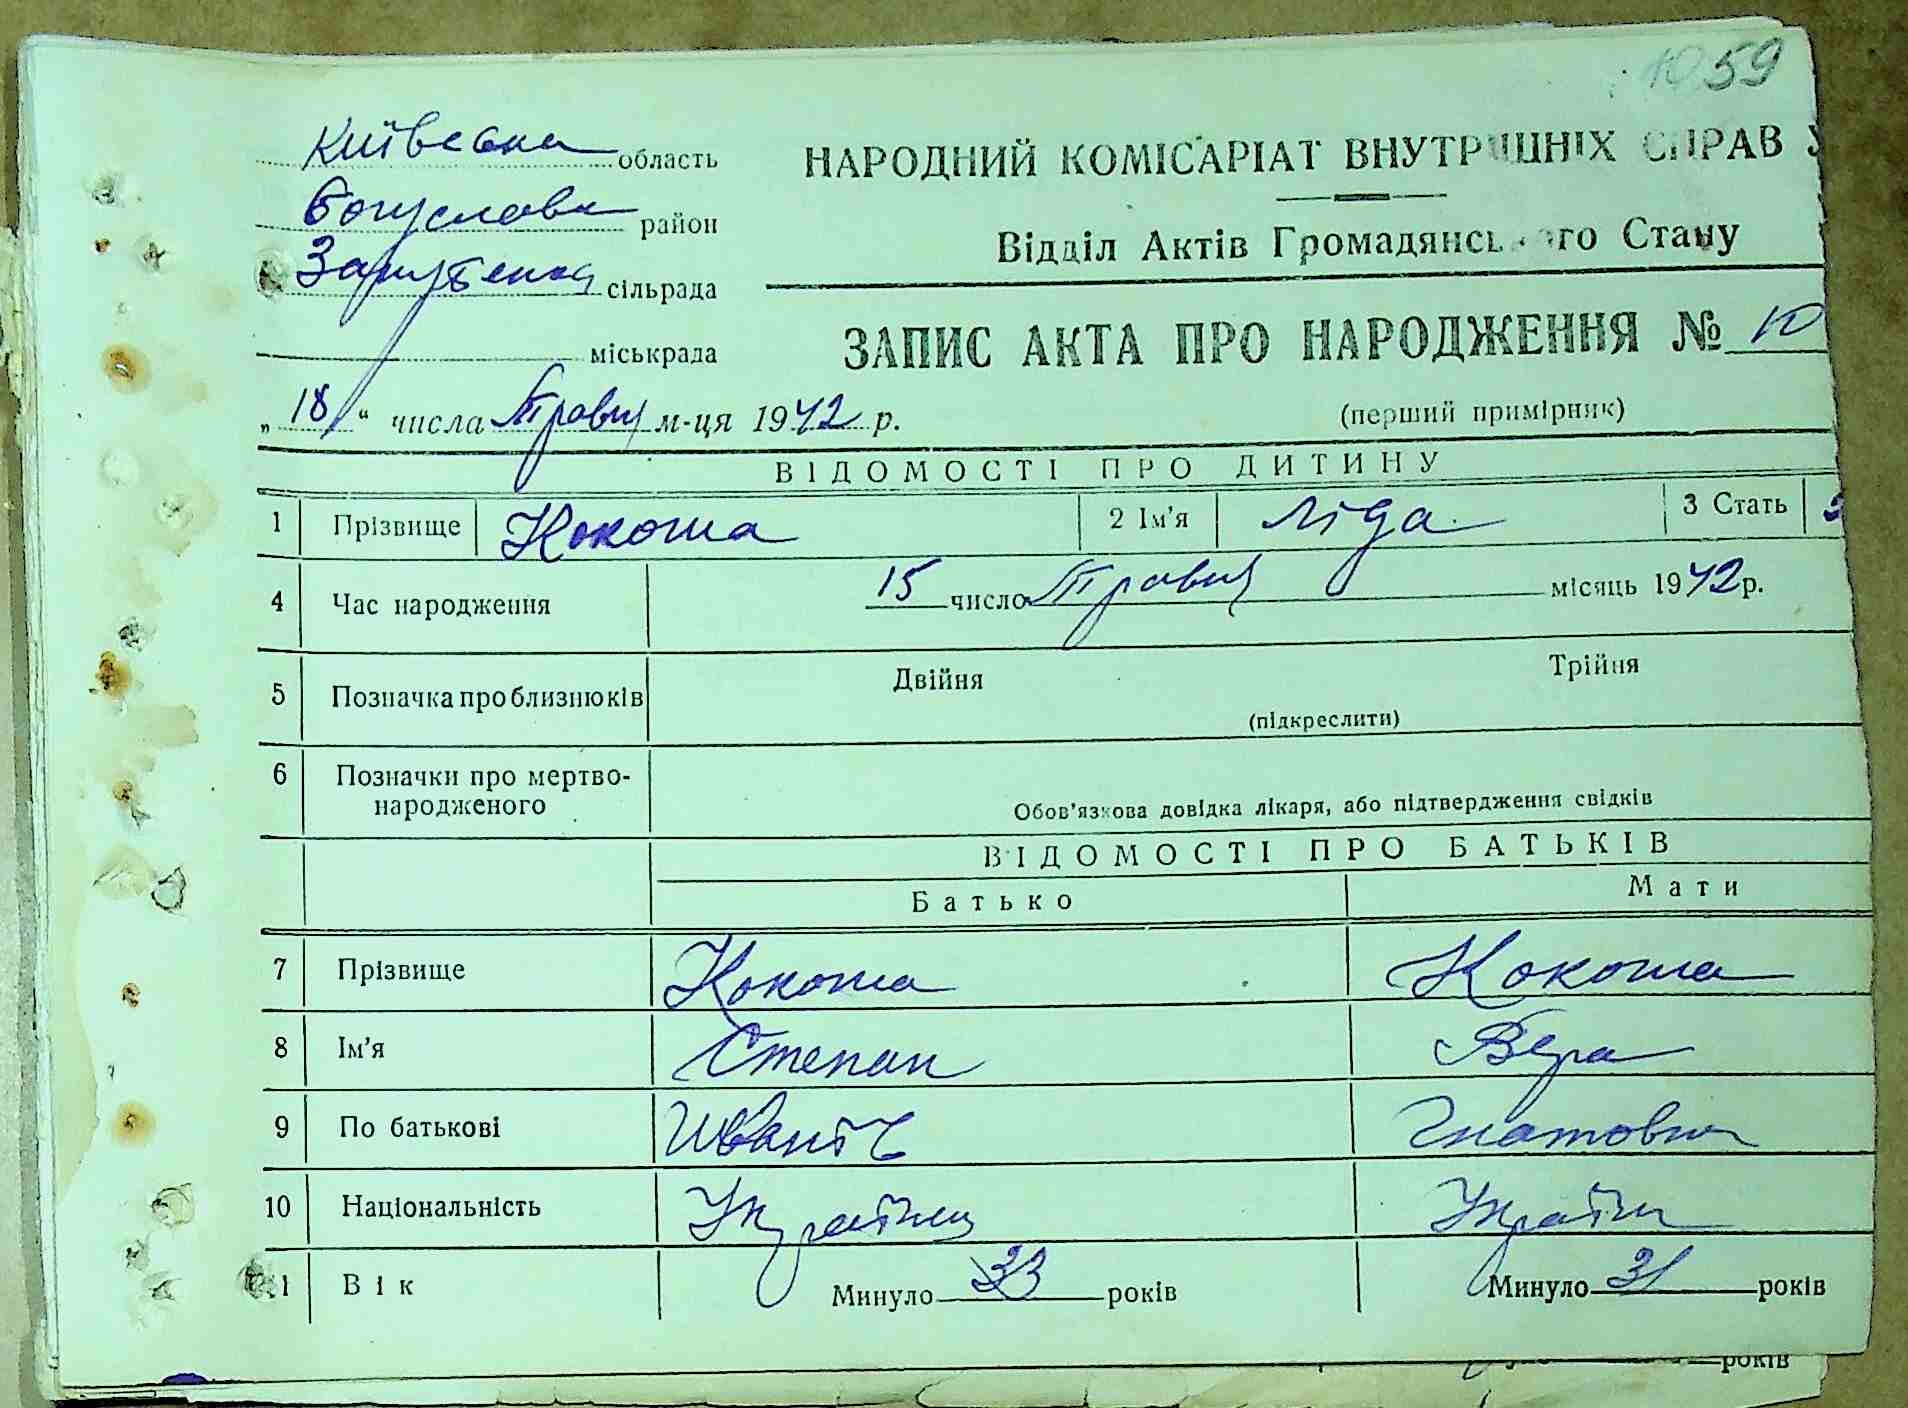 1059
Київська область
Богуслав район
сільрада
міськрада
НАРОДНИЙ КОМІСАРІАТ ВНУТРІШНІХ СПРАВ У
Відділ Актів Громадянського Стану
ЗАПИС АКТА ПРО НАРОДЖЕННЯ № 10
„18“ числа Травня м-ця 1942 р.
(перший примірник)
ВІДОМОСТІ ПРО ДИТИНУ
1 Прізвище Кокоша 2 Ім'я Ліда 3 Стать
4 Час народження 15 число Травня місяць 1942 р.
5 Позначка про близнюків Двійня Трійня
(підкреслити)
6 Позначки про мертво-
народженого
Обов'язкова довідка лікаря, або підтвердження свідків
ВІДОМОСТІ ПРО БАТЬКІВ
Батько Мати
7 Прізвище Кокоша Кокоша
8 Ім'я Степан Вера
9 По батькові Гнатовна
10 Національність
11 Вік Минуло 33 років Минуло 31 років
років